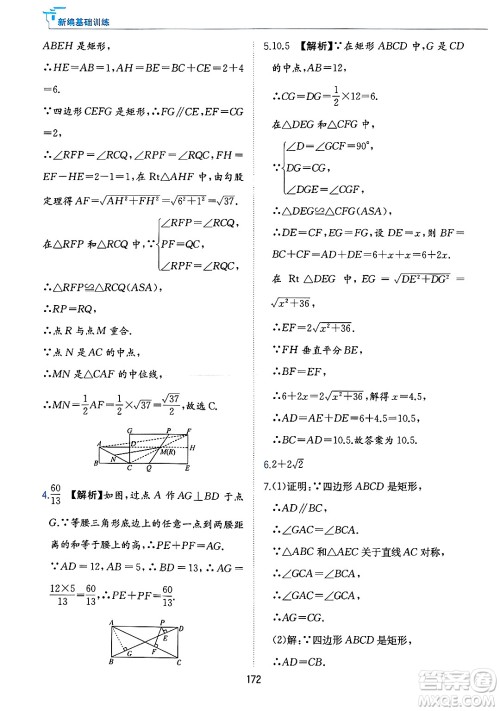 新编基础训练
ABEH 是矩形,
∴HE=AB=CD,BH=AE=2+4
=6.
∵四边形 CEFG 是矩形,∴FG∥CE,FG
=2,
∴∠RFP=∠RCQ,∠RPF=∠RQC,FH=
EF-HE=2-1=1.在 Rt△AHF 中,由勾股
定理得 AF=√AH²+FH²=√6²+1²=√37.
在△RFP 和△RCQ 中,∵
∠RFP=∠RCQ,
PF=QC,
∠RPF=∠RQC,
∴△RFP≌△RCQ(ASA),
∴RP=RQ,
∴点 R 与点 M 重合.
∵点 N 是 AC 的中点,
∴MN 是△CAF 的中位线,
∴MN=1/2AF=1/2×√37=√37/2,故选 C.
G P F
A H
M(R)
N
B C Q E
4.60/13 【解析】如图,过点 A 作 AG⊥BD 于点
G.∵等腰三角形底边上的任意一点到两腰距
离的和等于腰上的高,∴PE+PF=AG.
∵AD=12,AB=5,∴BD=13,∴AG=
12×5/13=60/13,∴PE+PF=60/13.
A P D
E
G F
B C
5.10.5 【解析】∵在矩形 ABCD 中,G 是 CD
的中点,AB=12,
∴CG=DG=1/2×12=6.
在△DEG 和△CFG 中,
∠D=∠GCF=90°,
DG=CG,
∠DGE=∠CGF,
∴△DEG≌△CFG(ASA),
∴DE=CF,EG=FG.设 DE=x,则 BF=
BC+CF=AD+CF=4+x+x.
在 Rt △DEG 中,EG=√DE²+DG²=
√x²+36,
∴EF=2√x²+36.
∵FH 垂直平分 BE,
∴BF=EF,
∴6+2x=2√x²+36,解得 x=4.5,
∴AD=AE+DE=6+4.5=10.5,
∴BC=AD=10.5.故答案为 10.5.
6.2+2√2
7.(1)证明:∵四边形 ABCD 是矩形,
∴AD∥BC,
∴∠GAC=∠ACB.
∵△ABC 与△AEC 关于直线 AC 对称,
∴∠ACB=∠GCA,
∴∠GAC=∠GCA,
∴AG=CG.
(2)解:∵四边形 ABCD 是矩形,
∴AD=CB.
172